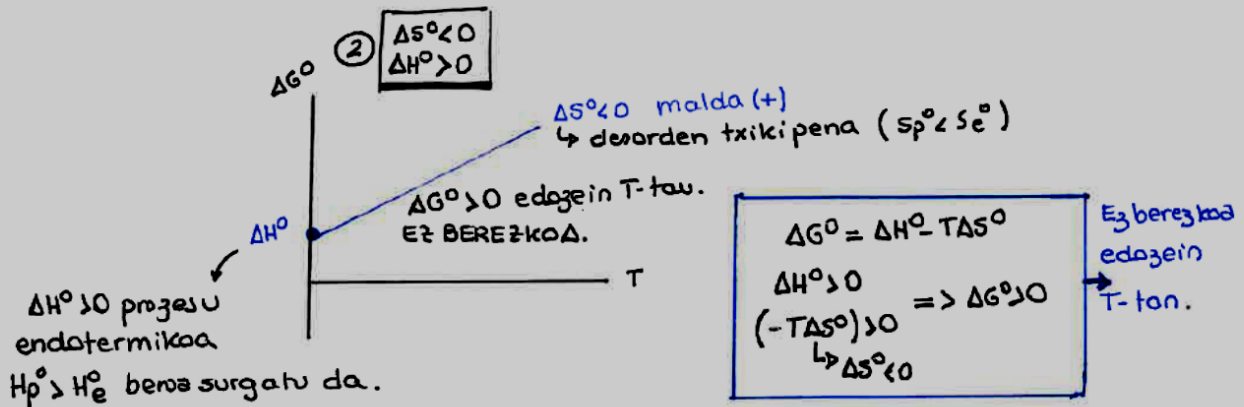 ② ΔS⁰<0
ΔH⁰>0
ΔG⁰
ΔS⁰<0 malda (+)
↳ desorden txikipena (Sp⁰<Se⁰)
ΔG⁰>0 edozein T-tan.
EZ BEREZKOA.
ΔH⁰
T
ΔH⁰>0 prozesu
endotermikoa
Hp⁰>He⁰ beroa surgatu da.
ΔG⁰ = ΔH⁰-TΔS⁰
ΔH⁰>0
(-TΔS⁰)>0 => ΔG⁰>0
↳ ΔS⁰<0
Ez berezkoa
edozein
T-tan.